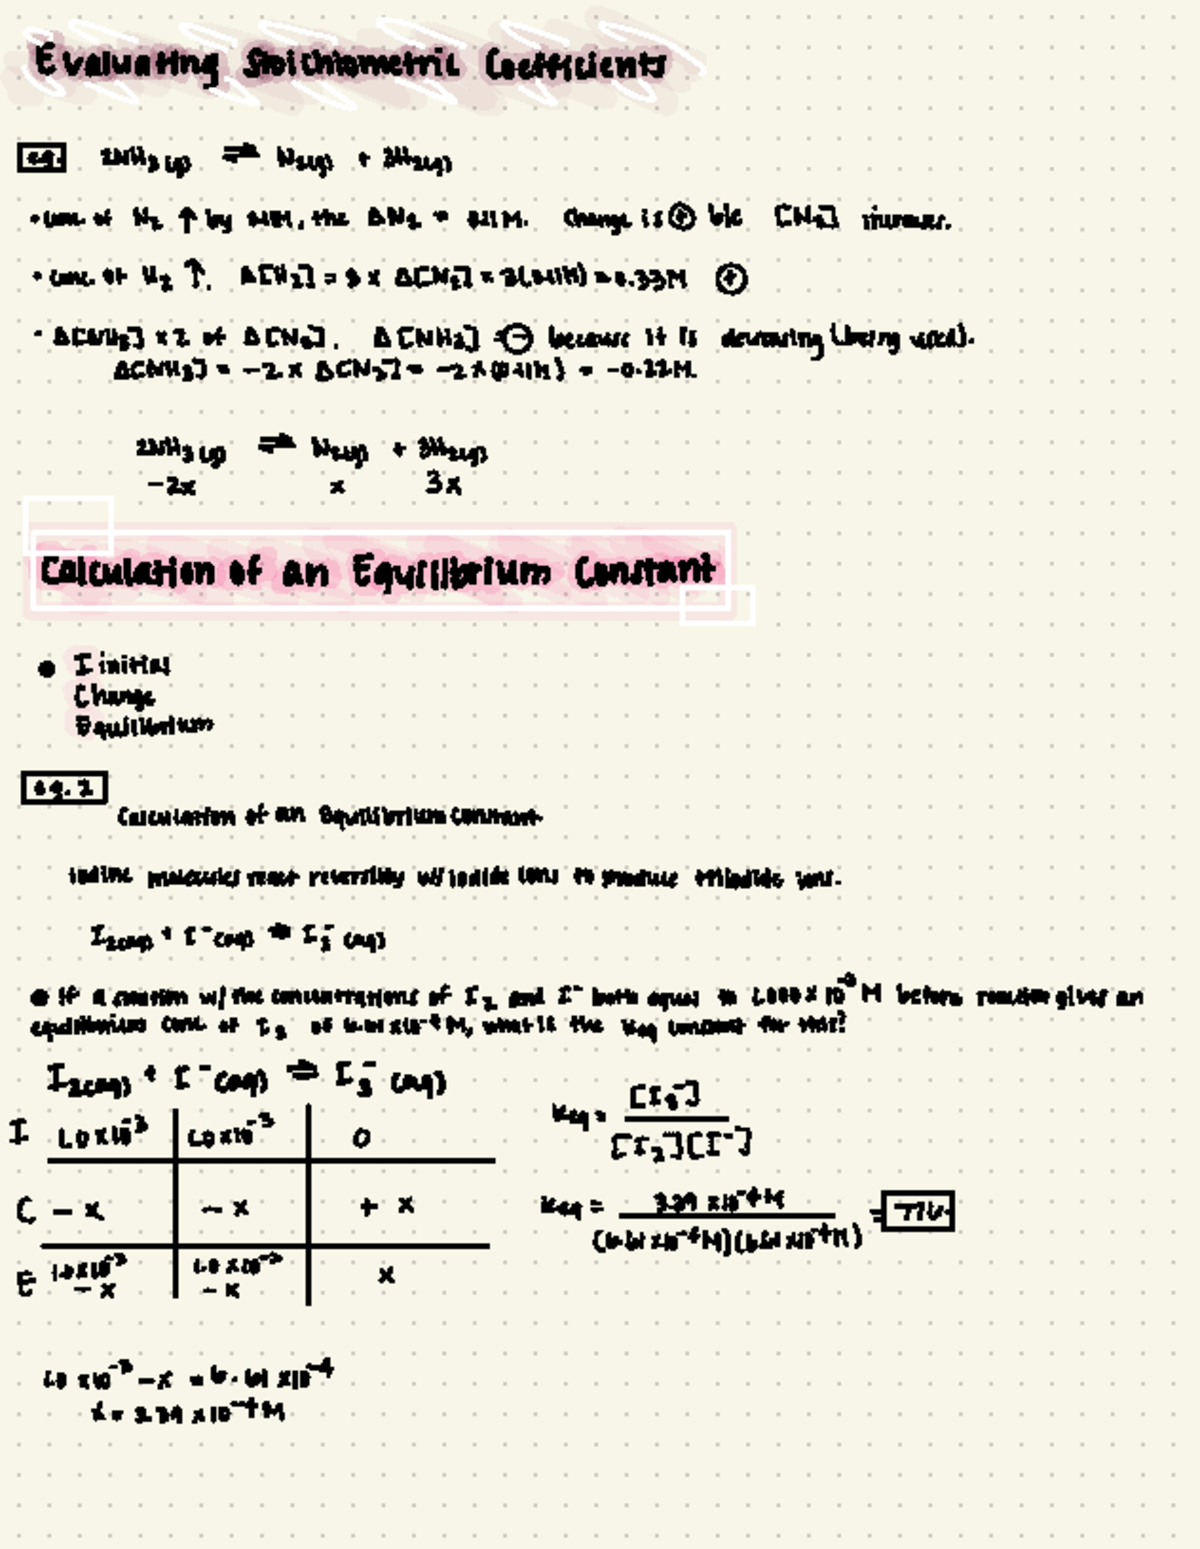 Evaluating Stoichiometric Coefficients
eg. 2NH3(g) ⇌ N2(g) + 3H2(g)
• conc. of N2 ↑ by 0.11M, the ΔN2 = 0.11M. Change is ⊕ b/c [N2] increases.
• conc. of H2 ↑. Δ[H2] = 3 x Δ[N2] = 3(0.11M) = 0.33M ⊕
• Δ[NH3] x 2 of Δ[N2]. Δ[NH3] ⊖ because it is decreasing (being used).
Δ[NH3] = -2 x Δ[N2] = -2 x (0.11M) = -0.22M.
2NH3(g) ⇌ N2(g) + 3H2(g)
-2x x 3x
Calculation of an Equilibrium Constant
• I initial
Change
Equilibrium
eg. 2
Calculation of an Equilibrium Constant
Iodine molecules react reversibly w/ iodide ions to produce triiodide ions.
I2(aq) + I-(aq) ⇌ I3-(aq)
• If a solution w/ the concentrations of I2 and I- both equal to 1.000 x 10-3 M before reaction gives an
equilibrium conc. of I2 of 6.61 x 10-4 M, what is the Keq constant for this?
I2(aq) + I-(aq) ⇌ I3-(aq)
I 1.0 x 10-3 1.0 x 10-3 0
C - x - x + x
E 1.0 x 10-3 - x 1.0 x 10-3 - x x
1.0 x 10-3 - x = 6.61 x 10-4
x = 3.39 x 10-4 M
Keq = [I3-] / [I2][I-]
Keq = 3.39 x 10-4 M / (6.61 x 10-4 M)(6.61 x 10-4 M) = 776